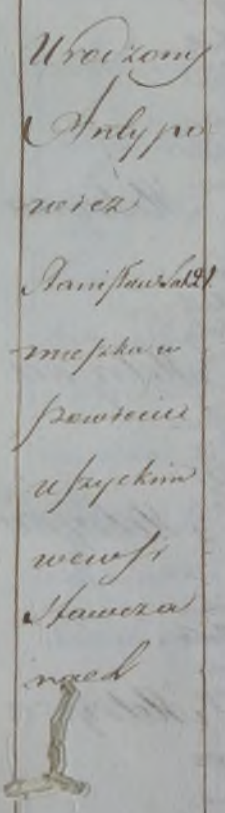 Urodzony
Antypo
wicz
Stanisław Lat 21.
mieszka w
Powiecie
uszyckim
we wsi
Stawcza
nach